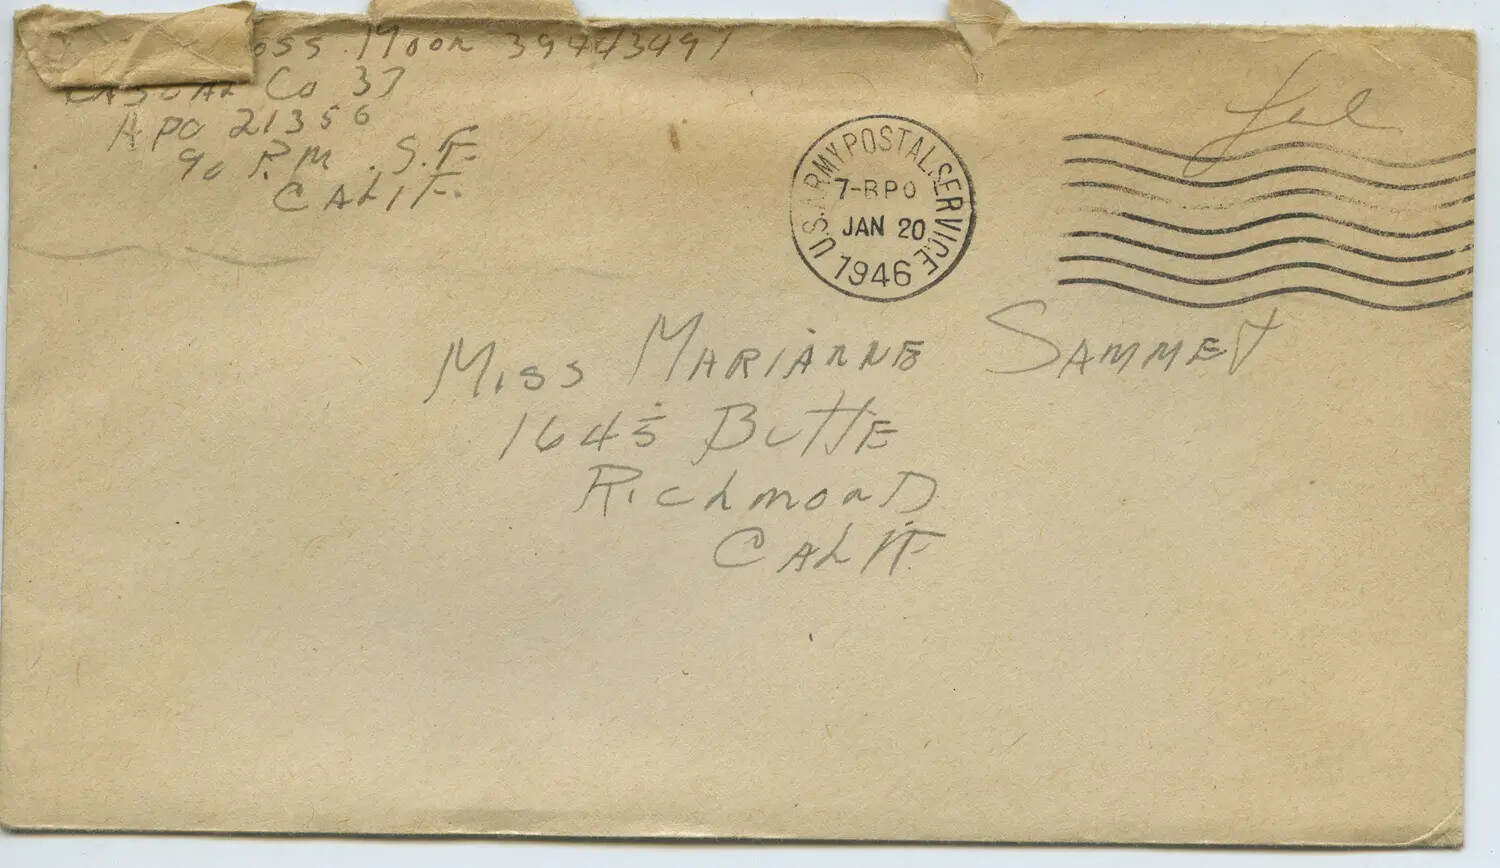 oss Moon 39443491
Casual Co 37
APO 21356
% P.M. S.F.
CALIF.
U.S. ARMY POSTAL SERVICE
7-BPO
JAN 20
1946
Miss MARIANNE SAMMET
1645 Butte
Richmond
CALIF